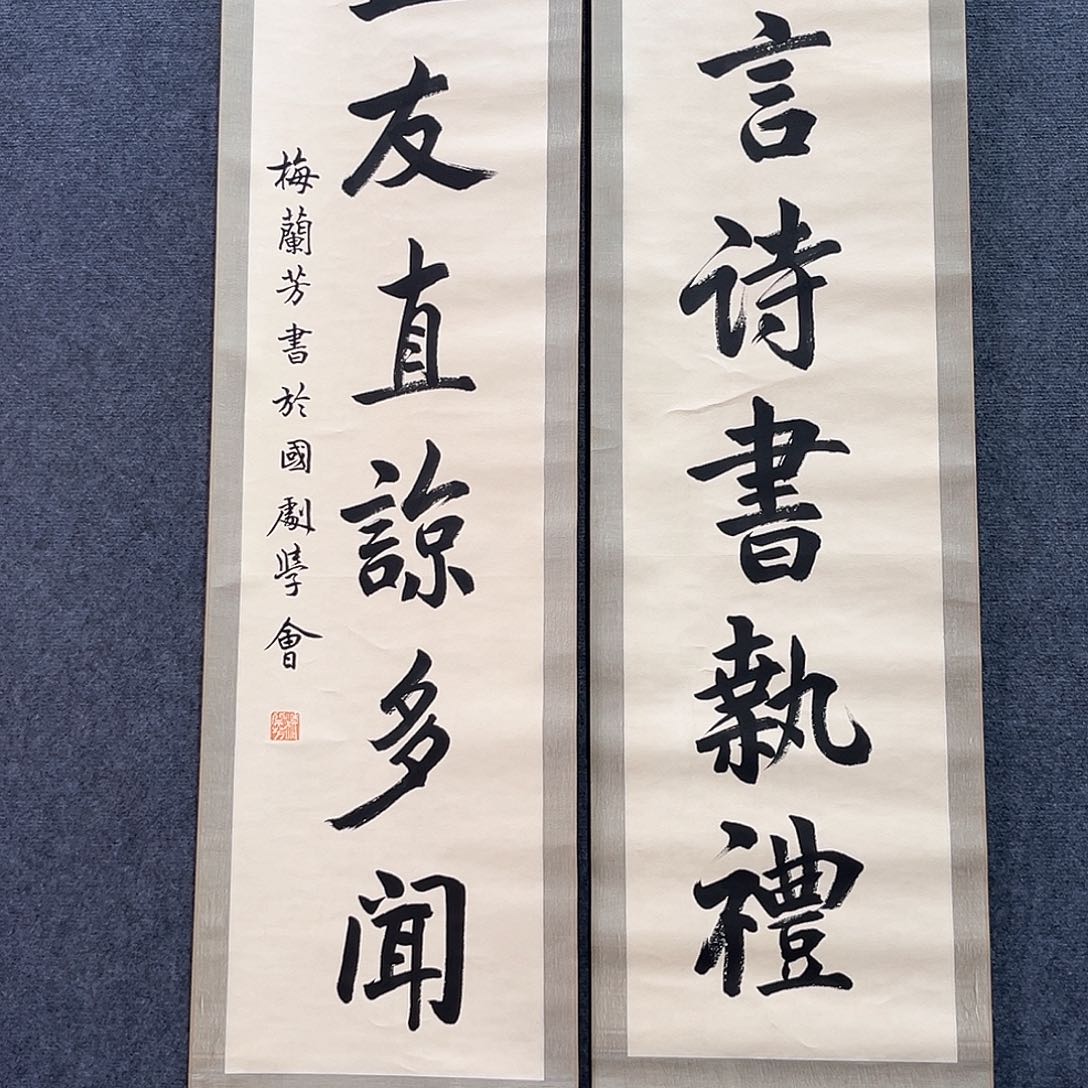 言诗書執禮
友直諒多闻
梅蘭芳書於國劇學會